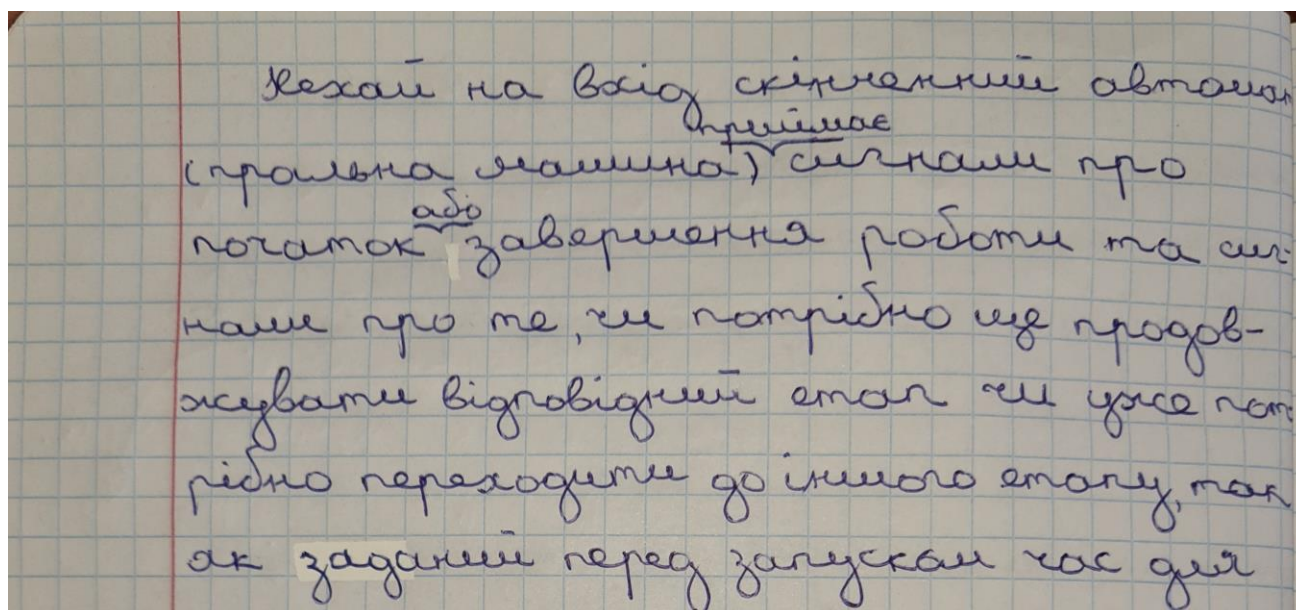 Нехай на вхід скінченний автомат
приймає
(пральна машина) сигнали про
або
початок завершення роботи та сиг-
нали про те, чи потрібно ще продов-
жувати відповідний етап чи уже пот-
рібно переходити до іншого етапу, так
як заданий перед запуском час для